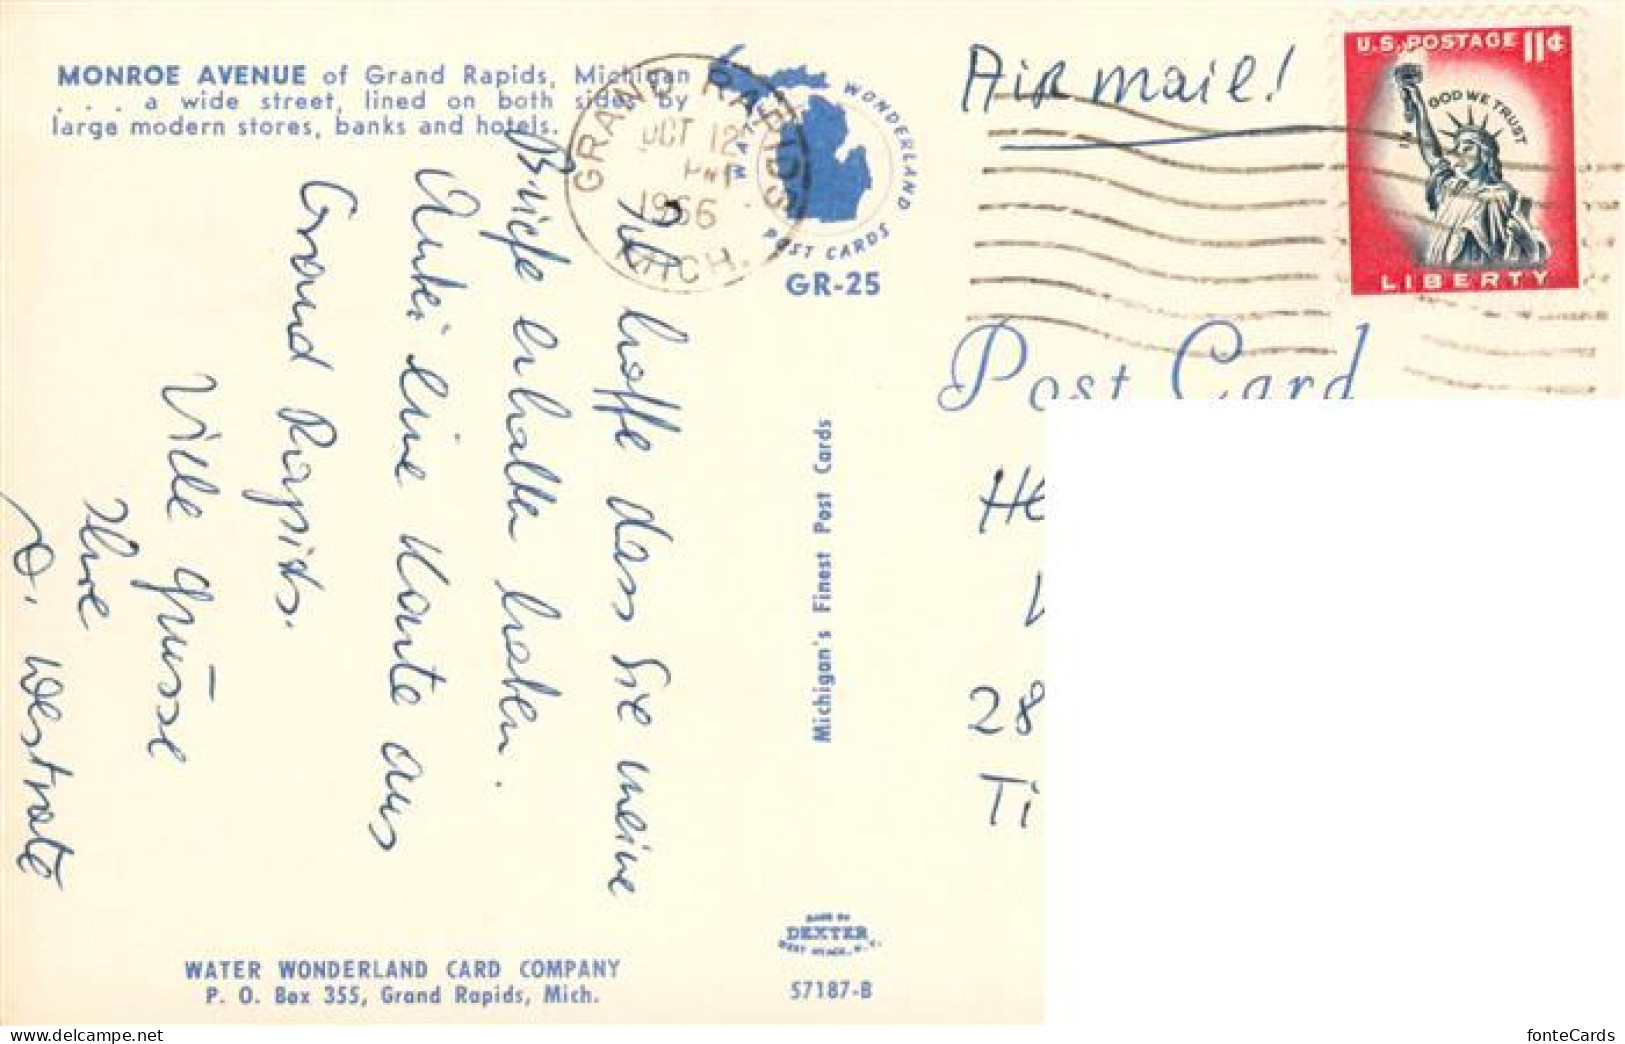 MONROE AVENUE of Grand Rapids, Michigan
. . . a wide street, lined on both sides by
large modern stores, banks and hotels.
GRAND RAPIDS
OCT 12
PM
1966
MICH.
WATER WONDERLAND
POST CARDS
GR-25
Air mail!
U.S. POSTAGE 11¢
IN GOD WE TRUST
LIBERTY
Post Card
Ich hoffe dass Sie meine
Briefe erhalten haben.
Anbei eine Karte aus
Grand Rapids.
Viele Grüsse
Ihre
D. Westrate
Michigan's Finest Post Cards
28
Ti
MADE BY
DEXTER
WEST NYACK, N. Y.
57187-B
WATER WONDERLAND CARD COMPANY
P. O. Box 355, Grand Rapids, Mich.
fonteCards
https://www.delcampe.net